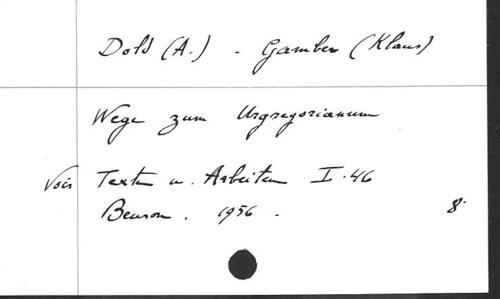 Dold (A.) - Gamber (Klaus)
Wege zum Urgregorianum
Voir Texte u. Arbeiten I.46
Beuron. 1956.
8.